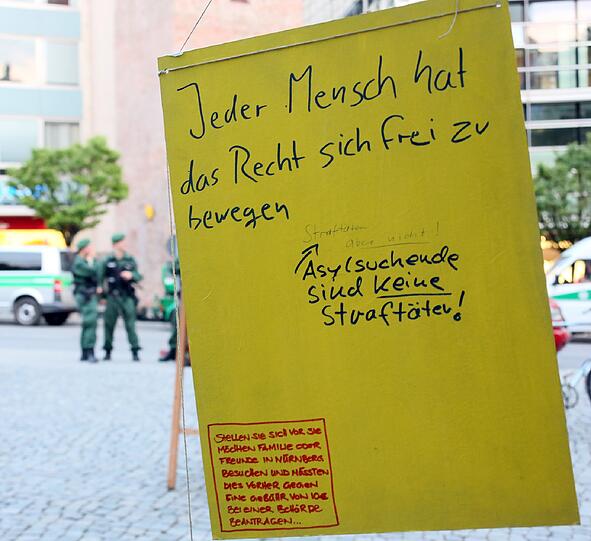 Jeder Mensch hat
das Recht sich frei zu
bewegen
Straftäter
aber nicht!
Asylsuchende
sind keine
Straftäter!
STELLEN SIE SICH VOR SIE
MÖCHTEN FAMILIE ODER
FREUNDE IN NÜRNBERG
BESUCHEN UND MÜSSTEN
DIES VORHER GEGEN
EINE GEBÜHR VON 10€
BEI EINER BEHÖRDE
BEANTRAGEN...